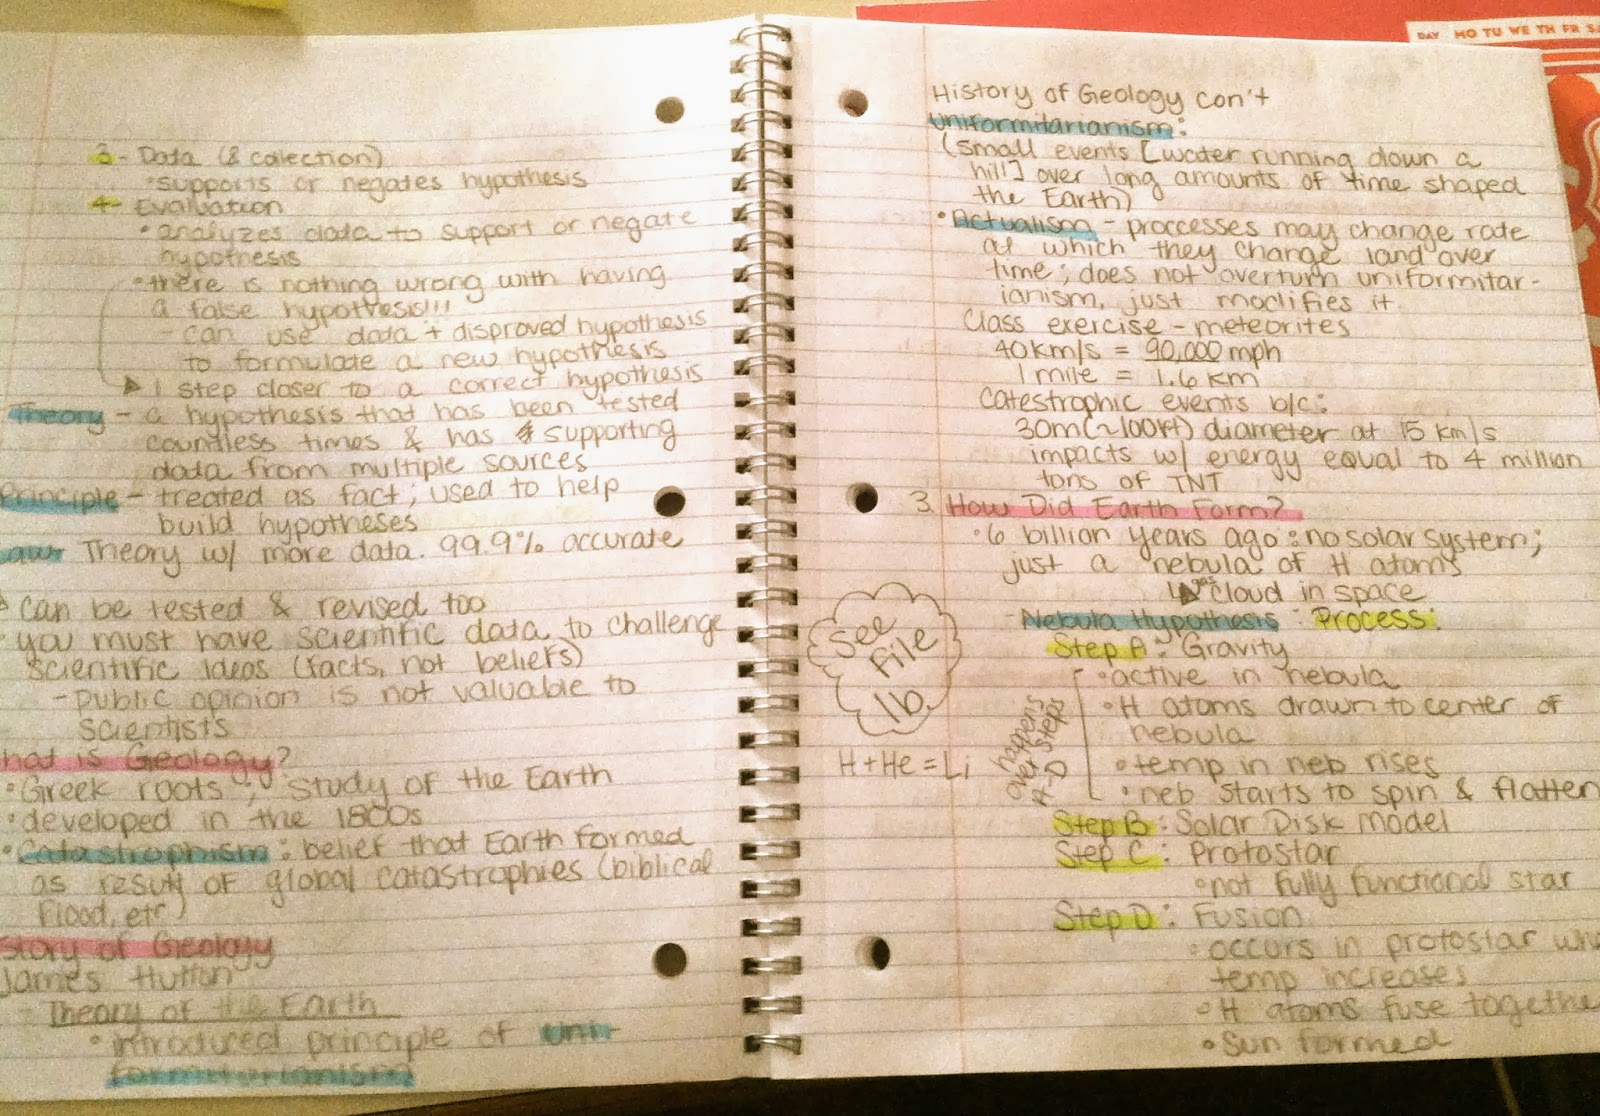 3- Data (& calection)
•supports or negates hypothesis
4- Evaluation
•analyzes data to support or negate
hypothesis
•there is nothing wrong with having
a false hypothesis!!!
- can use data + disproved hypothesis
to formulate a new hypothesis
1 step closer to a correct hypothesis
Theory - a hypothesis that has been tested
countless times & has supporting
data from multiple sources
Principle - treated as fact; used to help
build hypotheses
Law Theory w/ more data. 99.9% accurate
can be tested & revised too
you must have scientific data to challenge
scientific ideas (facts, not beliefs)
- public opinion is not valuable to
scientists
hat is Geology?
•Greek roots; study of the Earth
•developed in the 1800s
•Catastrophism: belief that Earth formed
as result of global catastrophies (biblical
flood, etc)
story of Geology
James Hutton
Theory of the Earth
•introduced principle of uni-
formitarianism
History of Geology con't
Uniformitarianism:
(small events [water running down a
hill] over long amounts of time shaped
the Earth)
•Actualism - proccesses may change rate
at which they change land over
time; does not overturn uniformitar-
ianism, just modifies it.
Class exercise - meteorites
40km/s = 90,000 mph
1 mile = 1.6 km
Catestrophic events b/c:
30m (~100ft) diameter at 15 km/s
impacts w/ energy equal to 4 million
tons of TNT
3. How Did Earth Form?
•6 billion years ago: no solar system;
just a nebula of H atoms
gas cloud in space
- Nebula Hypothesis: Process:
Step A: Gravity
•active in nebula
•H atoms drawn to center of
nebula
•temp in neb rises
•neb starts to spin & flatten
happens over Steps A-D
Step B: Solar Disk Model
Step C: Protostar
•not fully functional star
Step D: Fusion
•occurs in protostar whe
temp increases
•H atoms fuse togethe
•Sun formed
See
File
1b.
H+He=Li
DAY MO TU WE TH FR SA